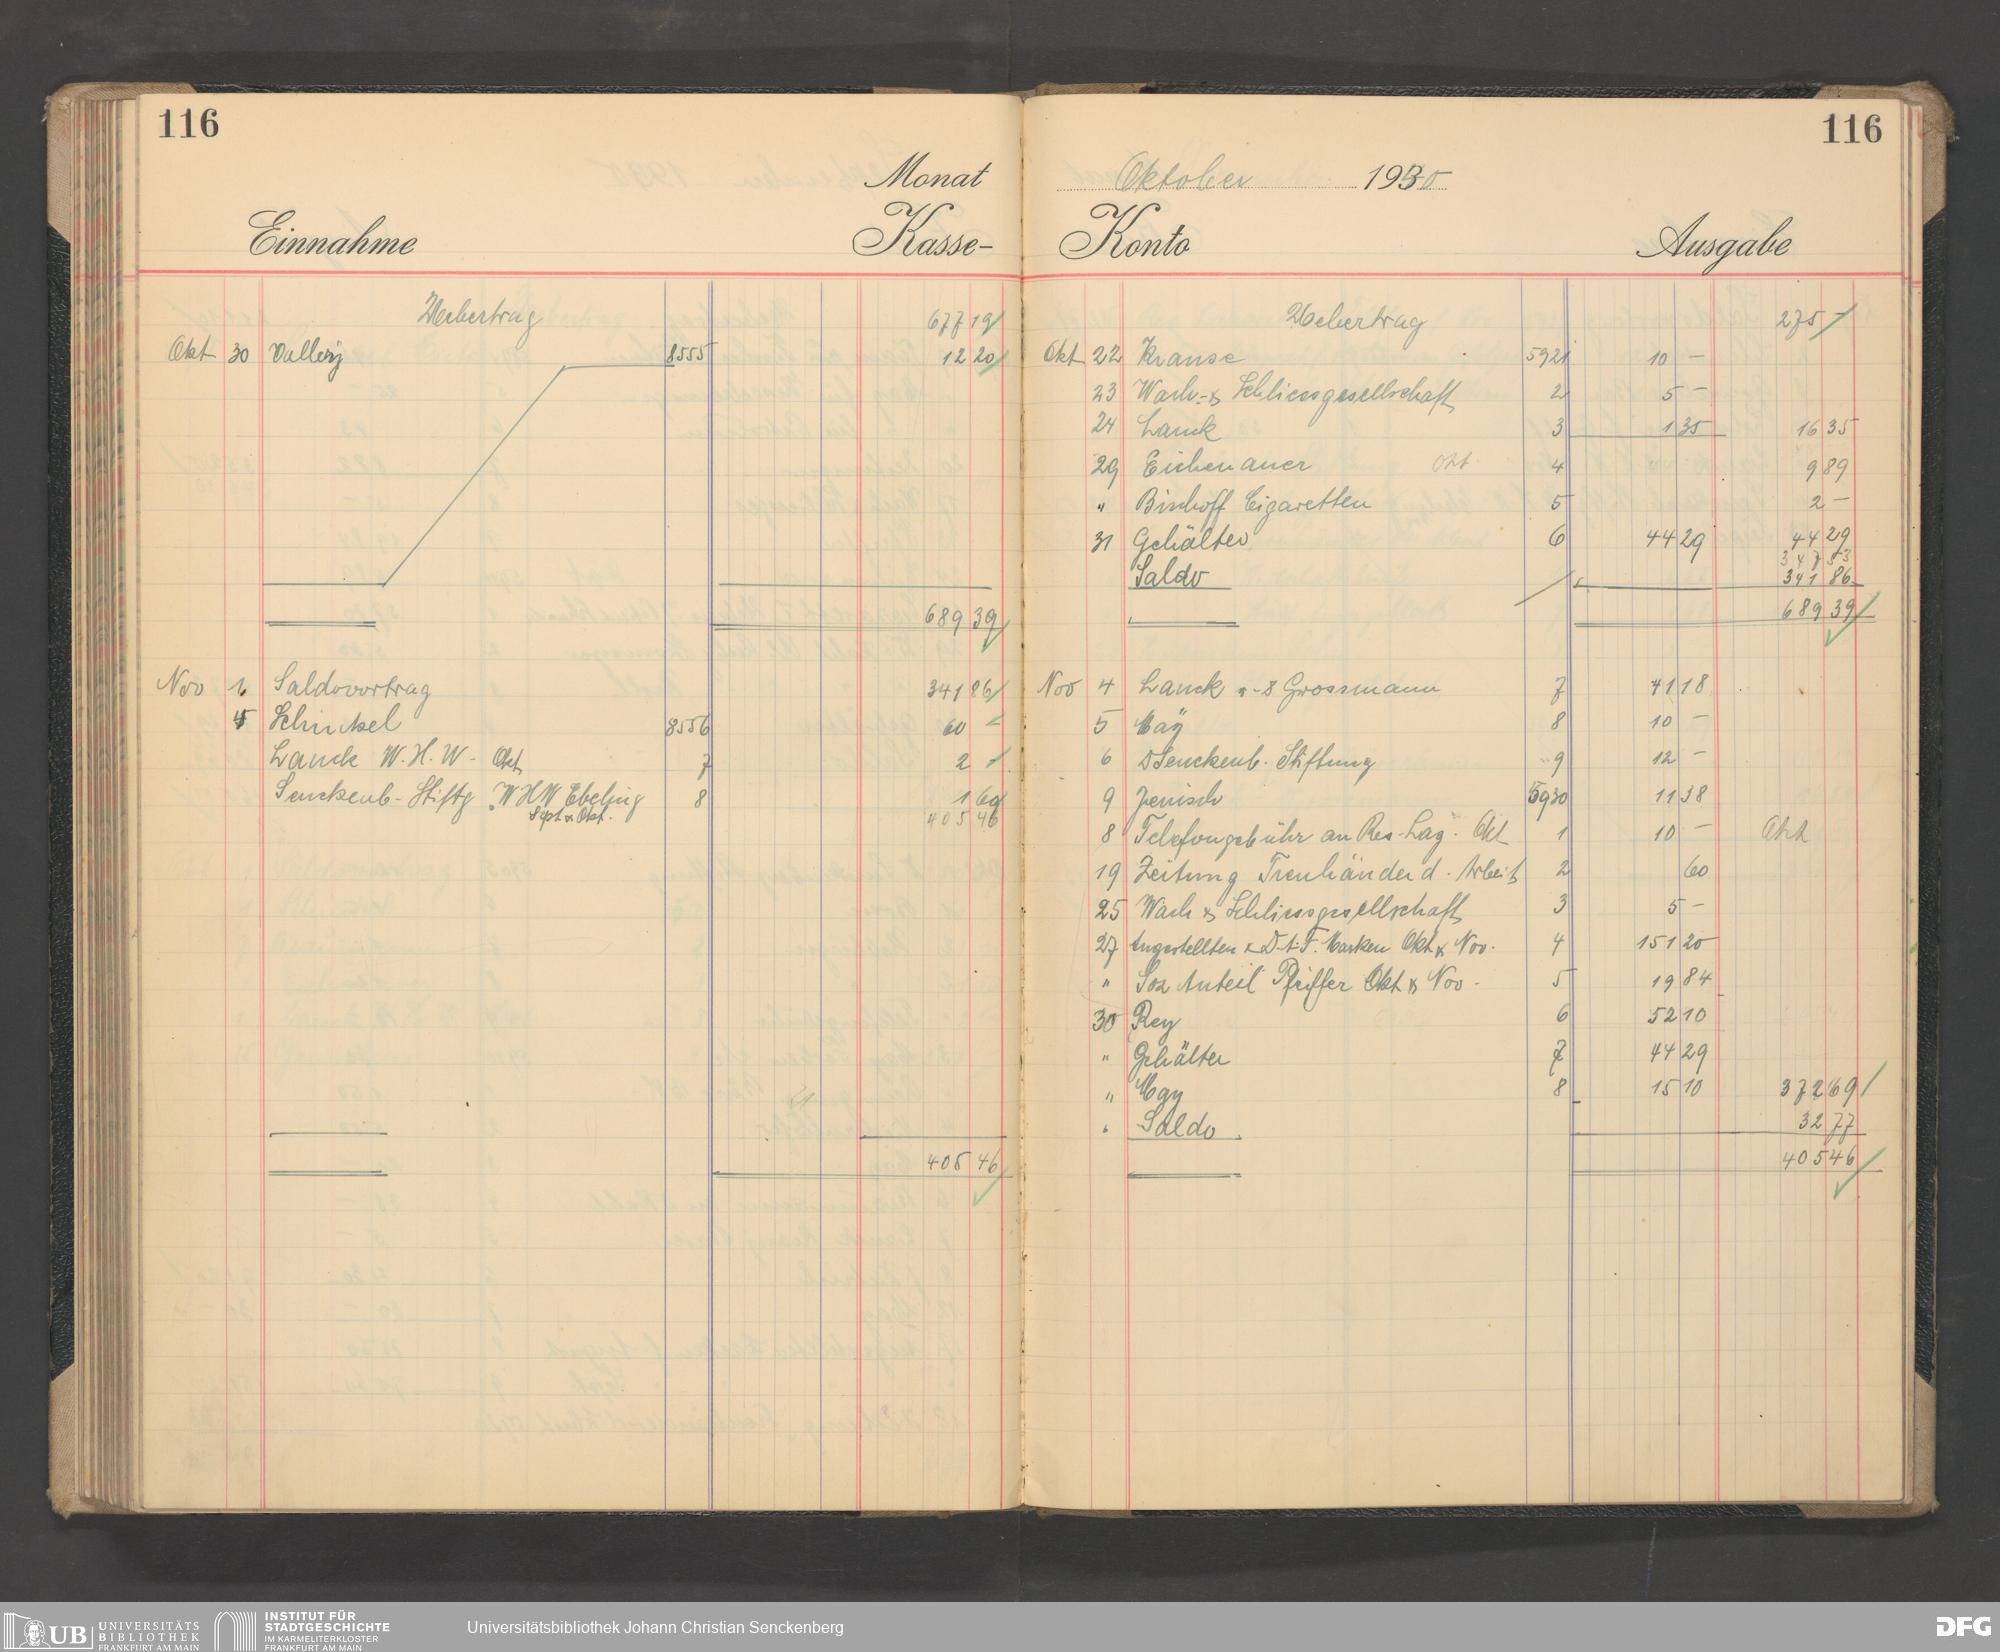 116
Monat
Einnahme Kasse-
Uebertrag 677 19
Okt 30 8555 12 20
689 39
Nov 1 Saldovortrag 341 86
5 Schinkel 8556 60 -
Lauck W.H.W- Okt 7 2 -
Senckenb-Stiftg WHW Ebeling 8 1 60
Sept & Okt. 405 46
405 46
116
Oktober 1930
Konto Ausgabe
Uebertrag 275 -
Okt 22 Krause 5921 10 -
23 Wach- & Schliessgesellschaft 2 5 -
24 Lauck 3 1 35 16 35
29 Eichenauer Okt 4 9 89
" Binhoff Cigaretten 5 2 -
31 Gehälter 6 44 29 44 29
347 53
Saldo 341 86
689 39
Nov 4 Lauck Grossmann 7 41 18
5 May 8 10 -
6 D Senckenb. Stiftung 9 12 -
9 Jenisch 5930 11 38
8 Telefongebühr an Res-Laz. Okt 1 10 - Okt
19 Zeitung Treuhänder d. Arbeit 2 60
25 Wach & Schliessgesellschaft 3 5 -
27 Angestellten & D.A.F. Marken Okt & Nov. 4 151 20
" Soz Anteil Pfeiffer Okt & Nov. 5 19 84
30 Rey 6 52 10
" Gehälter 7 44 29
" May 8 15 10 372 69
" Saldo 32 77
405 46
UB UNIVERSITÄTS
BIBLIOTHEK
FRANKFURT AM MAIN
INSTITUT FÜR
STADTGESCHICHTE
IM KARMELITERKLOSTER
FRANKFURT AM MAIN
Universitätsbibliothek Johann Christian Senckenberg
DFG